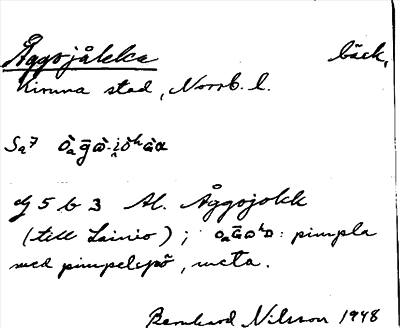 Åggojåkka bäck,
Kiruna stad, Norrb. l.
Sa7
G 5 b 3 Al. Åggojokk
(till Lainio) ; : pimpla
med pimpelspö, meta.
Bernhard Nilsson 1948